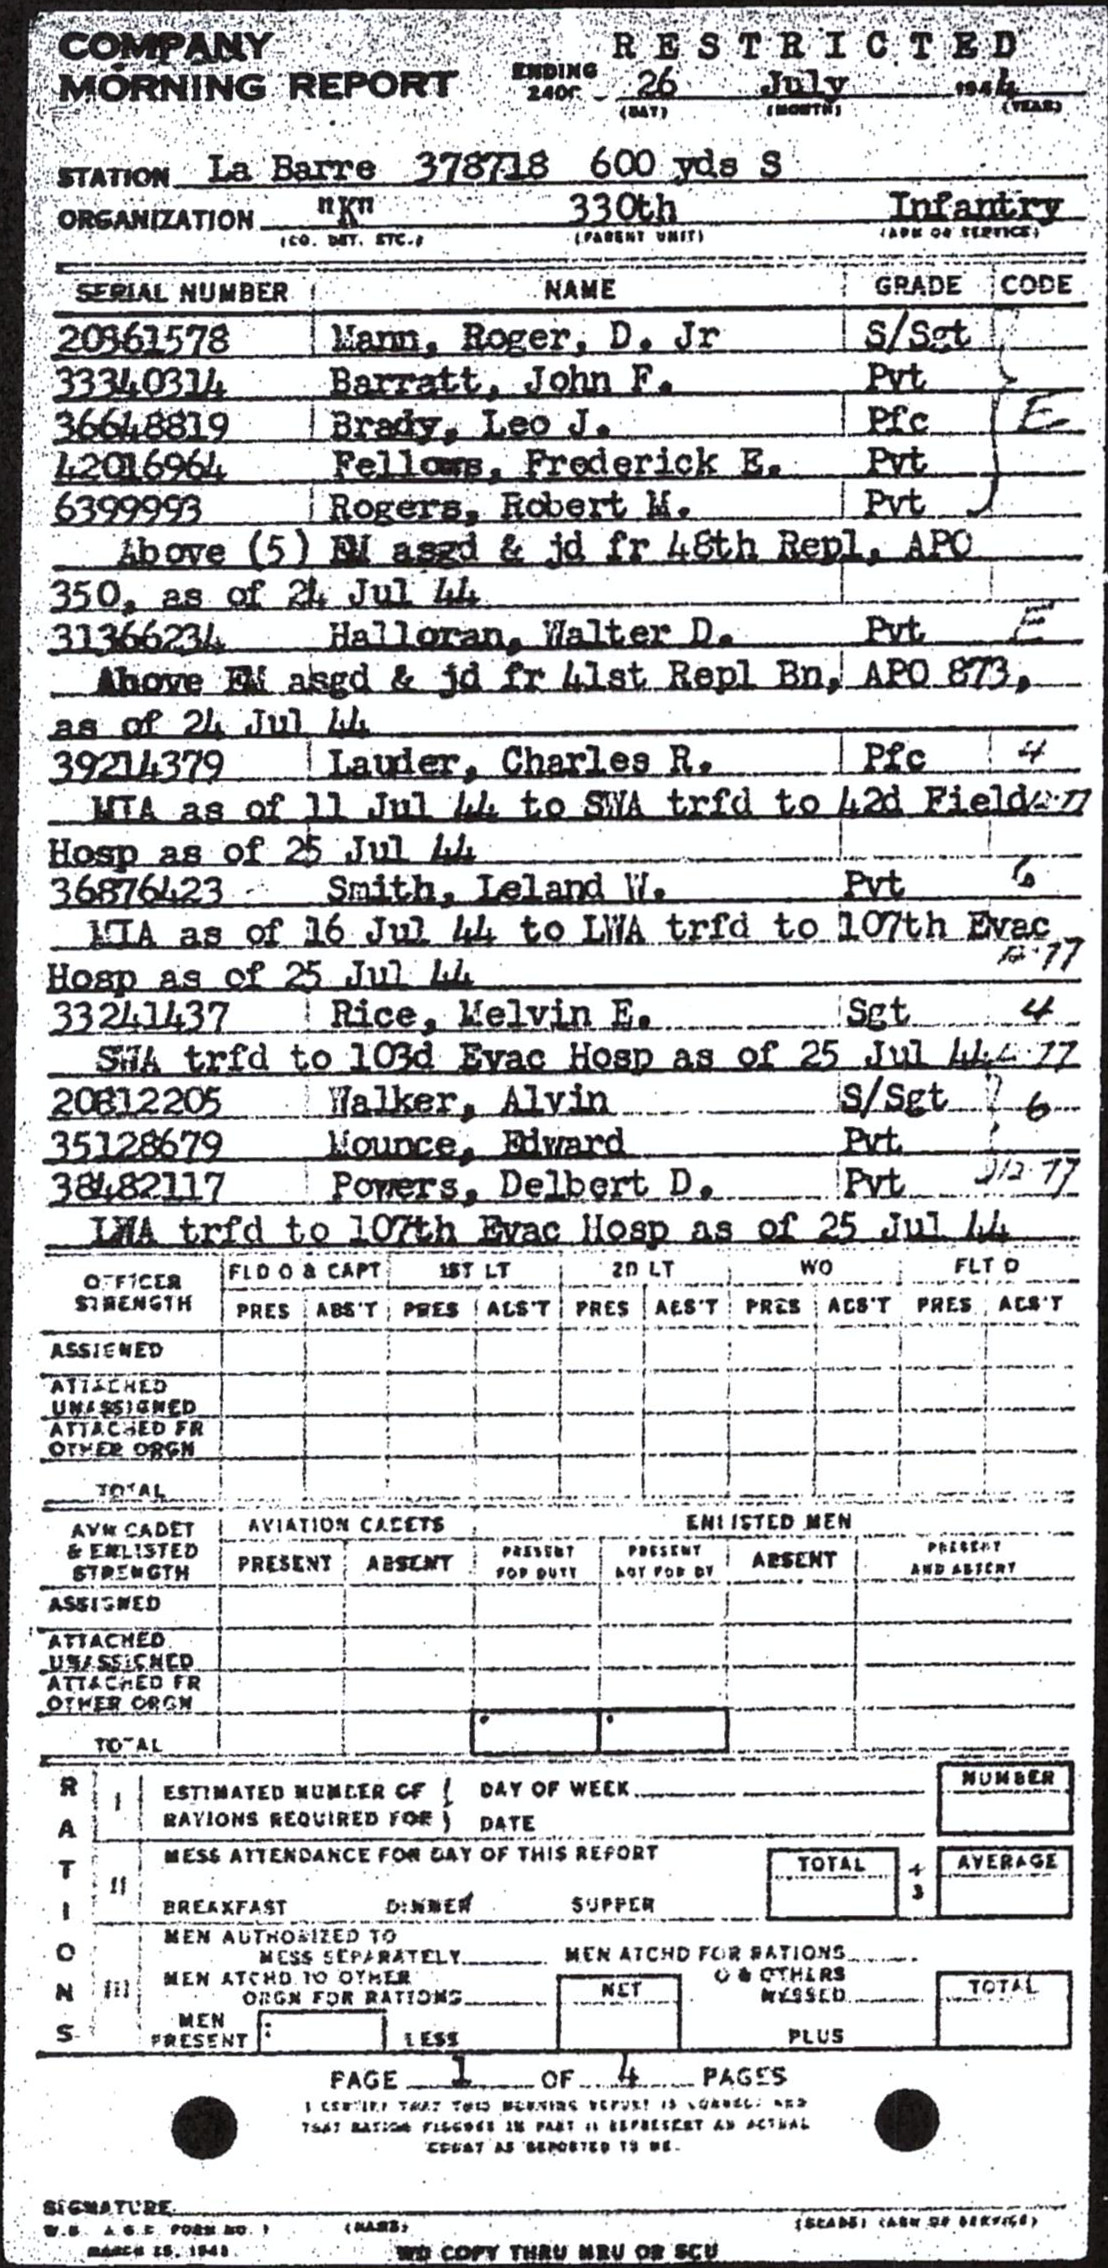 COMPANY RESTRICTED
MORNING REPORT ENDING 2400 26 July 1944
(DAY) (MONTH) (YEAR)
STATION La Barre 378718 600 yds S
ORGANIZATION "K" 330th Infantry
(CO. DET. ETC.) (PARENT UNIT) (ARM OR SERVICE)
SERIAL NUMBER NAME GRADE CODE
20361578 Mann, Roger, D. Jr S/Sgt
33340314 Barratt, John F. Pvt
36648819 Brady, Leo J. Pfc E
42016964 Fellows, Frederick E. Pvt
6399993 Rogers, Robert M. Pvt
Above (5) EM asgd & jd fr 48th Repl, APO
350, as of 24 Jul 44
31366234 Halloran, Walter D. Pvt E
Above EM asgd & jd fr 41st Repl Bn, APO 873,
as of 24 Jul 44
39214379 Lauder, Charles R. Pfc 4
MIA as of 11 Jul 44 to SWA trfd to 42d Field
Hosp as of 25 Jul 44
36876423 Smith, Leland W. Pvt 6
MIA as of 16 Jul 44 to LWA trfd to 107th Evac
Hosp as of 25 Jul 44
33241437 Rice, Melvin E. Sgt 4
SWA trfd to 103d Evac Hosp as of 25 Jul 44
20812205 Walker, Alvin S/Sgt 6
35128679 Mounce, Edward Pvt
38482117 Powers, Delbert D. Pvt
LWA trfd to 107th Evac Hosp as of 25 Jul 44
OFFICER STRENGTH FLD O & CAPT 1ST LT 2D LT WO FLT O
PRES ABS'T PRES ABS'T PRES ABS'T PRES ABS'T PRES ABS'T
ASSIGNED
ATTACHED
UNASSIGNED
ATTACHED FR
OTHER ORGN
TOTAL
AVN CADET AVIATION CADETS ENLISTED MEN
& ENLISTED
STRENGTH PRESENT ABSENT PRESENT FOR DUTY PRESENT NOT FOR DY ABSENT PRESENT AND ABSENT
ASSIGNED
ATTACHED
UNASSIGNED
ATTACHED FR
OTHER ORGN
TOTAL
RATIONS
I ESTIMATED NUMBER OF DAY OF WEEK NUMBER
RATIONS REQUIRED FOR DATE
II MESS ATTENDANCE FOR DAY OF THIS REPORT TOTAL ÷ 3 AVERAGE
BREAKFAST DINNER SUPPER
III MEN AUTHORIZED TO
MESS SEPARATELY MEN ATCHD FOR RATIONS
MEN ATCHD TO OTHER O & OTHERS
ORGN FOR RATIONS NET MESSED TOTAL
MEN
PRESENT LESS PLUS
PAGE 1 OF 4 PAGES
I CERTIFY THAT THIS MORNING REPORT IS CORRECT AND
THAT RATION FIGURES IN PART II REPRESENT AN ACTUAL
COUNT AS REPORTED TO ME.
SIGNATURE
W.D. A.G.O. FORM NO. 1 (NAME) (GRADE) (ARM OR SERVICE)
MARCH 25, 1943
WD COPY THRU MRU OR SCU